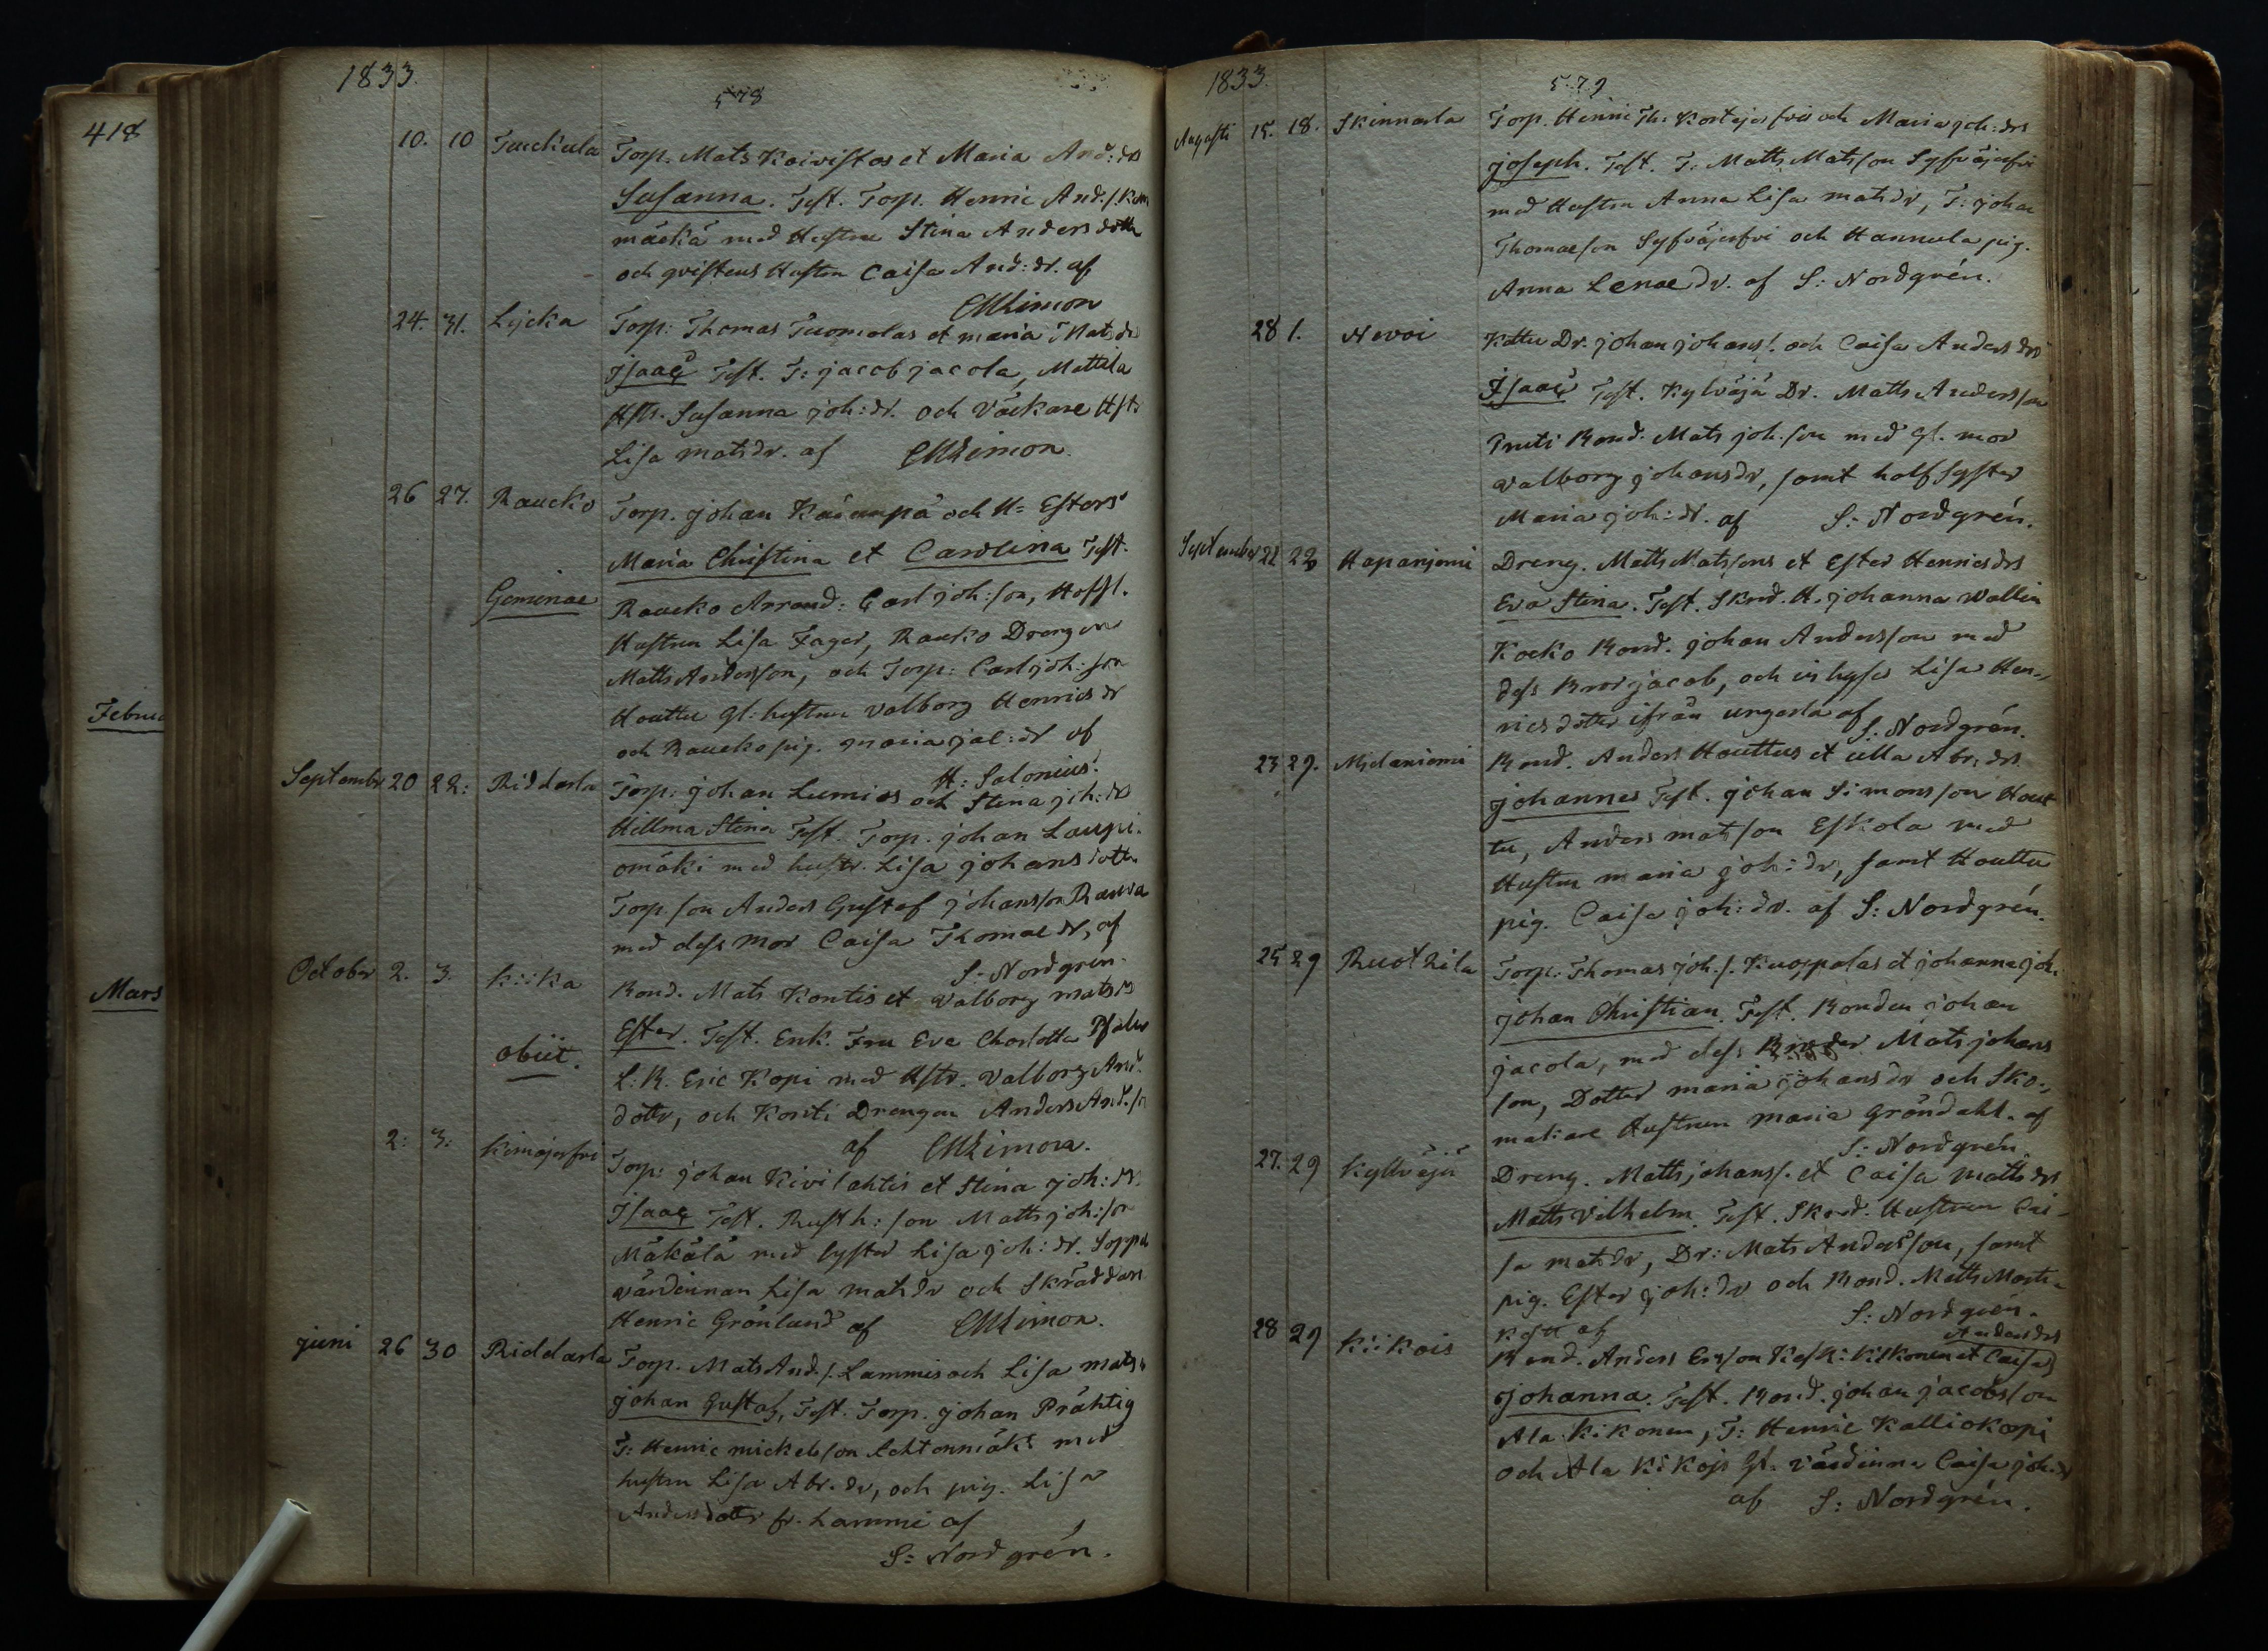 418
Februa
Mars
1833.
578
10. 10 Tuckula Torp. Mats Koivistos et Maria And:dr
Susanna. Test. Torp. Henric And.s.
mäckä med Hustru Stina Andersdottr
och qvistens Hustru Caisa And:dr. af
CMLimon
24. 31. Lycka Torp: Thomas Tuomolas et maria Matsdr
Isaac Test. T: jacob jacola, Mattila
Hstr. Susanna joh:dr. och Väckare Hstr
Lisa matsdr. af CMLimon.
26 27. Raucko Torp. johan Kaiampä och H= Esters
Maria Christina et Carolina Test.
Geminae Raucko Arrend: Carl joh:son, Hoffl.
Hustrun Lisa Fager, Rauko Drengen
Matts Andersson, och Torp: Carl joh:son
Houttu Gl: hustru valborg Henricsdr
och Raucko pig. maria jac:dr af
H: Salonius.
September 20 22: Riddarla Torp: johan Lumios och Stina joh:drs
Hillma Stina Test. Torp. johan Laupi-
omäki med hustr. Lisa johansdotter
Torp.son Anders Gustaf johansson Rauva
med dess mor Caisa Thomaedr, af
S: Nordgren.
October 2. 3. kiika Bond. Mats Kontis et valborg matsdr
Ester. Test. Enk. Fru Eva Charlotta
obiit. L: R. Eric Kopi med Hstr. Valborg And.
dottr, och Konti Drengen Anders And.sn
af CMLimon.
2: 3: kimajerfvi Torp: johan Kivilahtis et Stina joh:dr.
Isaac Test. Rusth:son Matts joh:son
Mäkälä med syster Lisa joh:dr. Soppa
värdinnan Lisa matsdr och Skräddare
Henric Grönlund af CMLimon.
juni 26 30 Riddarla Torp. Mats And.s. Lammis och Lisa mats
johan Gustaf, Test. Torp. johan Präktig
T: Henric mickelsson Lehtonmäki med
hustru Lisa Abr.dr, och pig. Lisa
Andersdottr fr. Lammi af
S: Nordgrén.
1833.
579
Augusti 15. 18. Skinnarla Torp. Henric Th: Kortejerfvis och Maria joh:drs
joseph. Test. T: Matts Matsson Syfväjerfvi
med Hustru Anna Lisa matsdr, T: johan
Thomaesson Syfväjerfvi och Hannula pig.
Anna Lenae dr. af S: Nordgrén.
28 1. Nevoi Kattu Dr. johan johans/. och Caisa Andersdrs
Isaac Test. Kylväjä Dr. Matts Andersson
Pruti Bond. Mats joh.son med Gl. mor
valborg johansdr, samt halfsyster
Maria joh:dr. af S: Nordgrén.
September 22 22 Haparijomi Dreng. Matts Matssons et Ester Henricsdrs
Eva Stina. Test. Skrd. H. johanna wallin
Kocko Bond. johan Andersson med
dess Bror jacob, och inhyses Lisa Hen-
ricsdotter ifrån ungarla af
S: Nordgrén.
23 29. Medanioni Bond. Anders Houttus et ulla Abr:drs.
johannes Test. johan Simonsson Hout
tu, Anders matsson Eskola med
Hustru maria joh:dr, samt Houttu
pig. Caisa joh:dr. af S: Nordgrén.
25 29 Ruothila Torp: Thomas joh./. Kuoppalas et johanna joh.
johan Christian. Test. Bonden johan
jacola, med dess Broder Mats johans
son, Dotter maria johansdr och Sko-
makare Hustrun maria Gröndahl. af
S: Nordgrén
27. 29 kyllväjä Dreng. Matts johans/. et Caisa mattsdrs
Matts Vilhelm. Test. Skrd. Hustrun Cai-
sa matsdr, Dr: Mats Andersson, samt
pig. Ester joh:dr och Bond. Matts
af S: Nordgrén.
28 29 kiikois Bond. Anders Ersson Keski: Kikonen et Caisa Andersdrs
johanna. Test. Bond. johan jacobsson
Ala Kikonen, T: Henric Kalliokorpi
och Ala Kikojs Gl. Värdinna Caisa joh:dr
af S: Nordgrén.